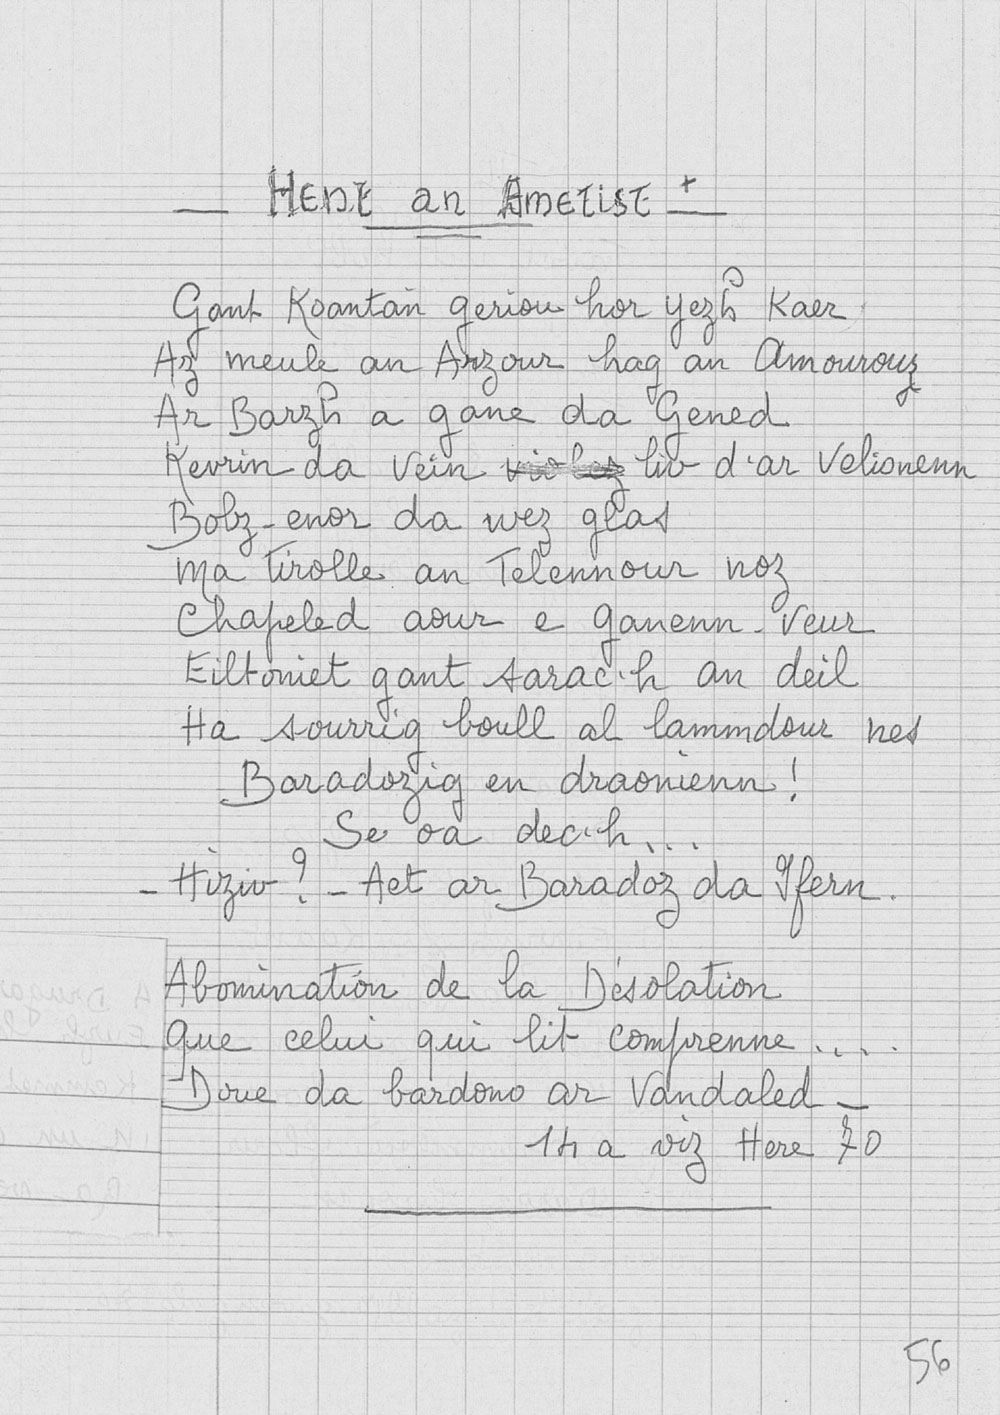 Hent an Ametist +
Gant Koantañ geriou hor yezh Kaer
Az meule an Arzour hag an Amourouz
Ar Barzh a gane da Gened
Kevrin da Vein liv d'ar Velionenn
Bolz-enor da wez glas
Ma Tirolle an Telennour noz
Chapeled aour e ganenn-Veur
Eiltoniet gant sarac'h an deil
Ha sourrig boull al lammdour nes
Baradozig en draonienn !
Se oa dec'h ...
- Hiziv ? - Aet ar Baradoz da Ifern.
Abomination de la Désolation
Que celui qui lit comprenne ....
Doue da bardono ar Vandaled -
14 a viz Here 70
56